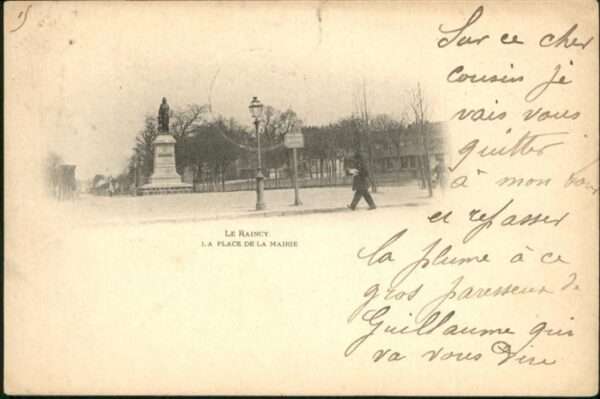 Sur ce cher
cousin je
vais vous
quitter
à mon tour
et repasser
la plume à ce
gros paresseux de
Guillaume qui
va vous dire
LE RAINCY
LA PLACE DE LA MAIRIE